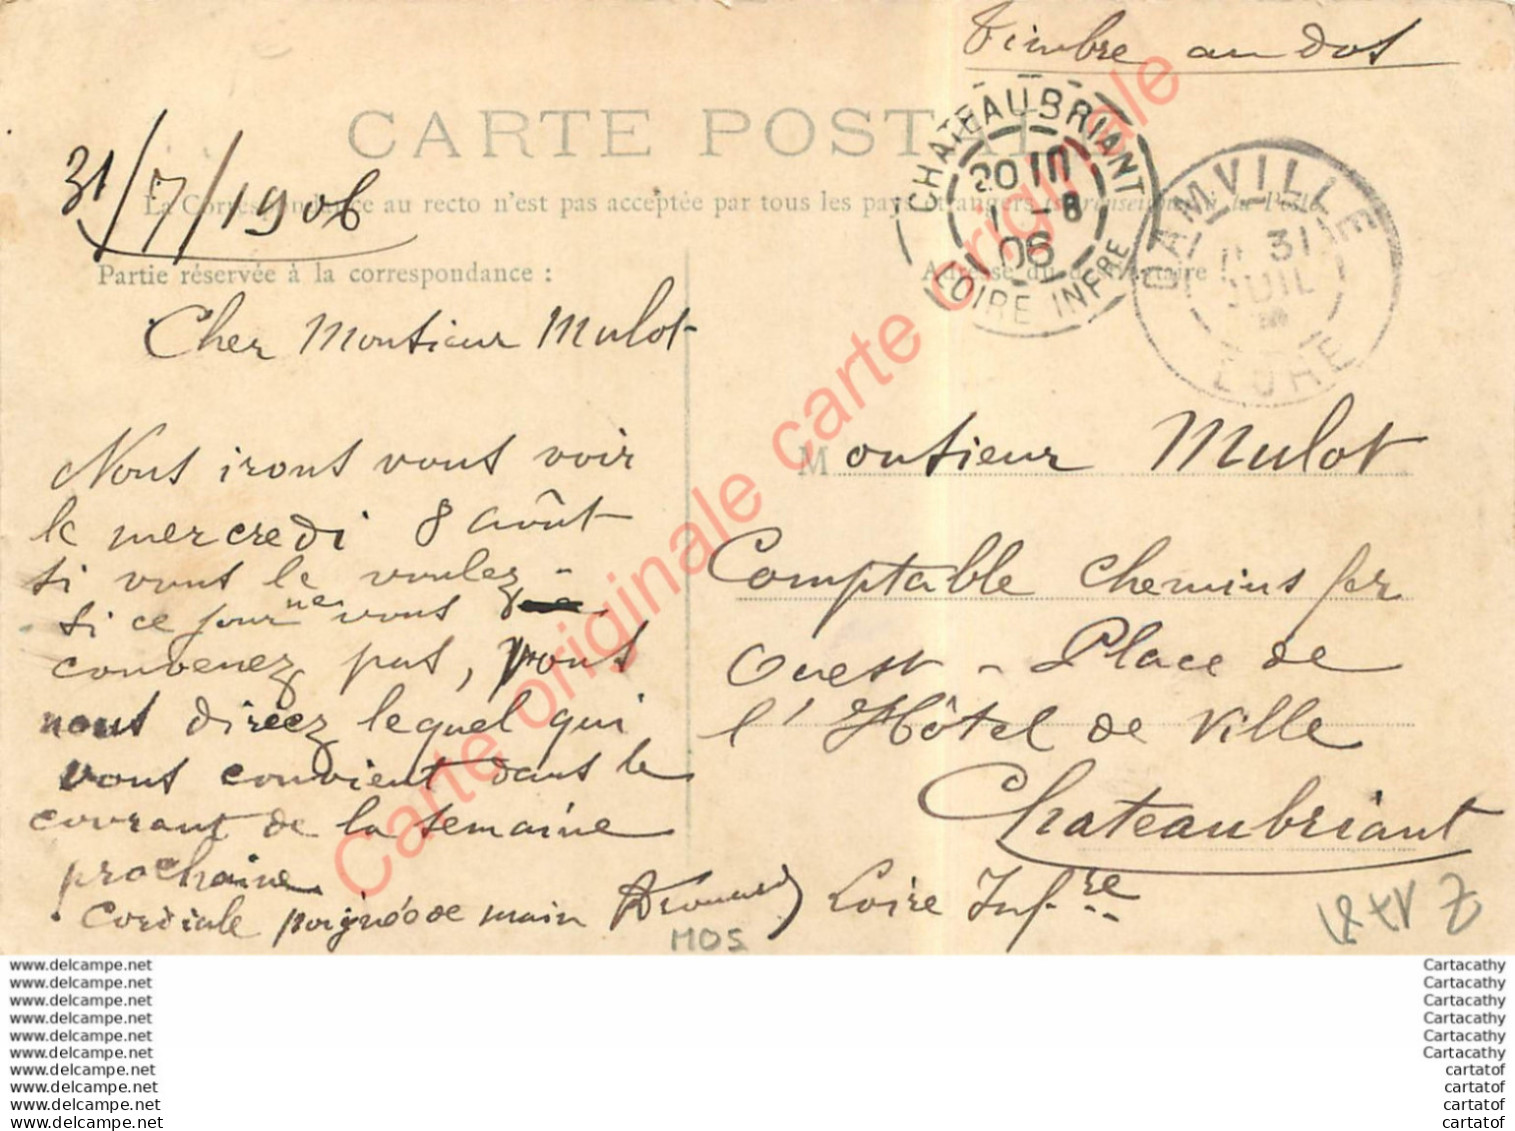 Timbre au dos
CARTE POSTALE
31/7/1906
La Correspondance au recto n'est pas acceptée par tous les pays étrangers (se renseigner à la Poste)
CHATEAUBRIANT
20 10
1 - 8
06
LOIRE INFRE
DAMVILLE
31
JUIL
EURE
Partie réservée à la correspondance :
Adresse du destinataire
Cher Monsieur Mulot
Nous irons vous voir
le mercredi 8 août
si vous le voulez -
si ce jour ne vous
convenez pas, vous
nous direez lequel qui
vous convient dans le
courant de la semaine
prochaine
Cordiale poignée de main
Monsieur Mulot
Comptable Chemins fer
Ouest - Place de
l'Hôtel de Ville
Chateaubriant
Loire Infre
MOS
Carte originale carte originale
www.delcampe.net
www.delcampe.net
www.delcampe.net
www.delcampe.net
www.delcampe.net
www.delcampe.net
www.delcampe.net
www.delcampe.net
www.delcampe.net
www.delcampe.net
Cartacathy
Cartacathy
Cartacathy
Cartacathy
Cartacathy
Cartacathy
cartatof
cartatof
cartatof
cartatof